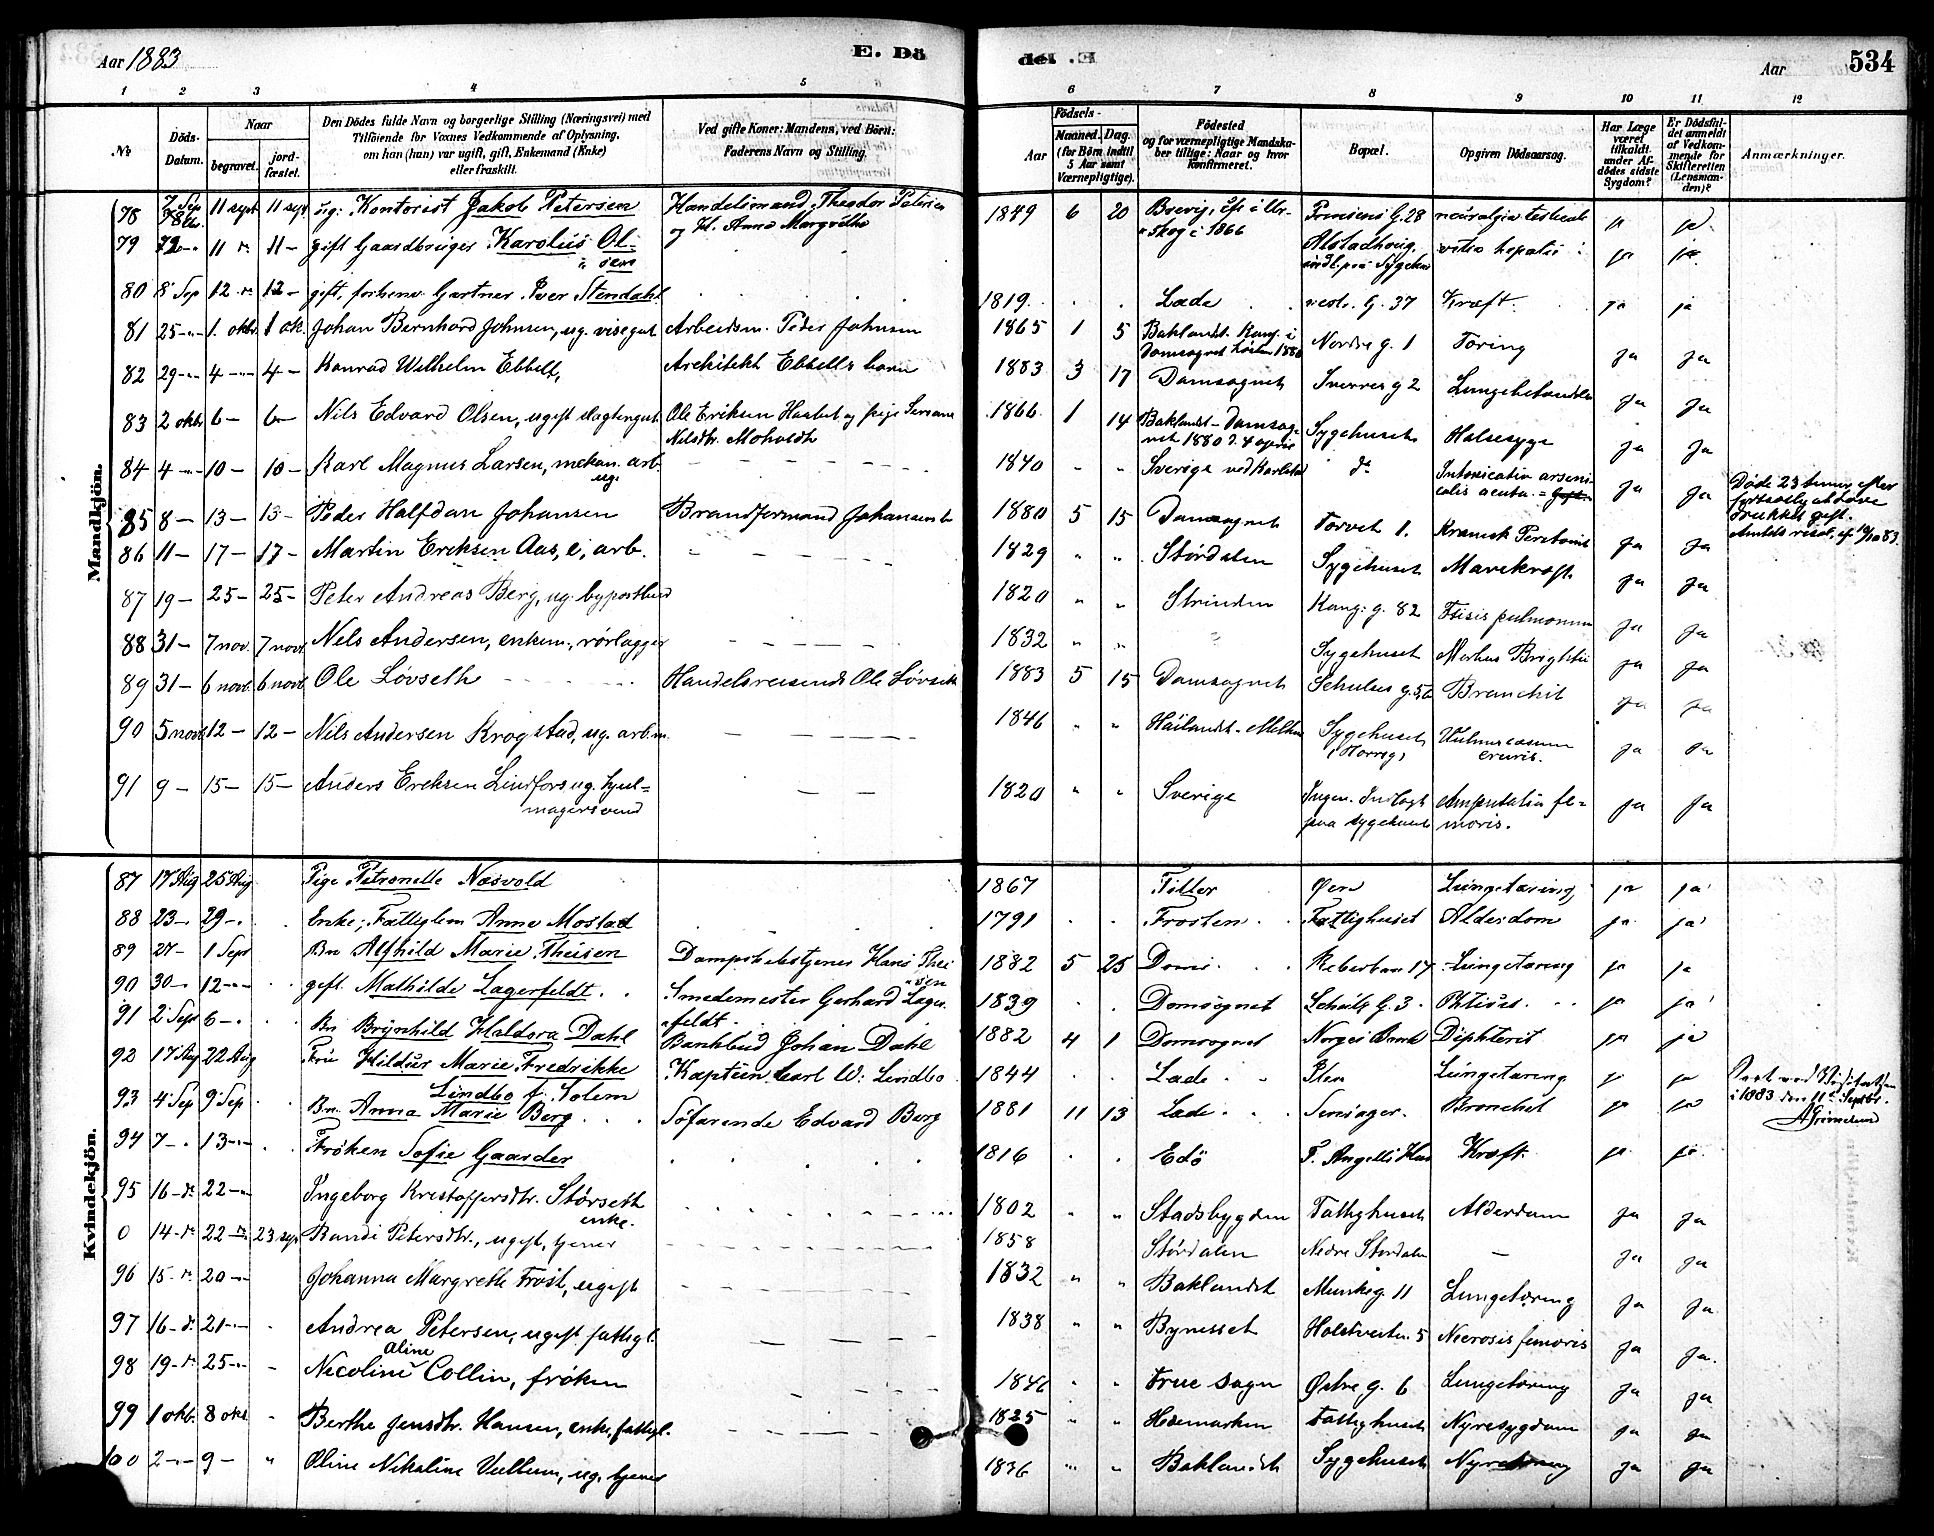 Aar 1883
E. Dö
döl .E
Aar
534
1 2 3 4 5 6 7 8 9 10 11 12
No
Döds-Datum.
Naar
begravet.
jord-fæstet.
Den Dödes fulde Navn og borgerlige Stilling (Næringsvei) med
Tilföiende for Voxnes Vedkommende af Oplysning,
om han (hun) var ugift, gift, Enkemand (Enke)
eller fraskilt.
Ved gifte Koner: Mandens, ved Börn:
Faderens Navn og Stilling.
Födsels-
Aar
Maaned.
Dag.
(for Börn indtil
5 Aar samt
Værnepligtige).
Födested
og for værnepligtige Mandska-
ber tillige: Naar og hvor
konfirmeret.
Bopæl.
Opgiven Dödsaarsag.
Har Læge
været
tilkaldt
under Af-
dödes sidste
Sygdom?
Er Dödsfal-
det anmeldt
af Vedkom-
mende for
Skifteretten
(Lensman-
den)?
Anmærkninger.
Mandkjön.
78 7 Sep 11 sept 11 sept ug: Kontorist Jakob Petersen Handelsmand Theodor Petersen 1849 6 20 Brevig, Prinsens G. 28 neuralgia ja ja
og H. Anna Margrethe skog i 1866
79 11 11 gift Gaardbruger Karolius Ol- hepatis ja ja
sen
80 8 Sep 12 12 gift, forhenv. Gartner Iver Stendahl 1819 Lade vestr. G. 37 Kræft ja ja
81 25 1. oktr 1 ok. Johan Bernhard Johnsen, ug. visegut Arbeidsm. Peder Johnsen 1865 1 5 Baklandt. Kong. i Nordre g. 1 Tæring ja ja
Domsognet høsten 1880
82 29 4 4 Konrad Wilhelm Ebbell, Arkitekt Ebbells barn 1883 3 17 Domsognet Sverres g 2 Lungebetændelse ja ja
83 2 oktr 6 6 Nils Edvard Olsen, ugift slagtergut Ole Eriksen og pige 1866 1 14 Baklandt - Domsog- Sygehuset Halsesyge ja ja
Nilsdtr. Moholdt net 1880 d. 4 april
84 4 10 10 Karl Magnus Larsen, mekan. arb. 1840 Sverige ved Karlstad do Intoxicatio arseni- ja ja Döde 23 timer efter
ug. calis acuta
85 8 13 13 Peder Halfdan Johansen Brandformand Johansen 1880 5 15 Domsognet Torvet 1. ja ja drukket gift.
86 11 17 17 Martin Eriksen Aas, e, arb. 1829 Størdalen Sygehuset Mavekræft ja ja
87 19 25 25 Peter Andreas Berg, ug. bypostbud 1820 Strinden Kong: g. 82 Ftisis pulmonum ja ja
88 31 7 nov. 7 nov. Nels Andersen, enkem., rørlægger 1832 Sygehuset Morbus Brightii ja ja
89 31 6 novb. 6 novb Ole Løvseth Handelsreisende Ole Løvseth 1883 5 15 Domsognet Schultes g. Bronchit ja ja
90 5 novb 12 12 Nils Andersen Krogstad, ug. arb.m. 1846 Høilandet - Melhus Sygehuset ja ja
cruris.
91 9 15 15 Anders Ereksen Lindfors ug. hjul- 1820 Sverige Ingen. Indlagt Amputatio fe- ja ja
magersvend paa sygehuset moris.
Kvindekjön.
87 17 Aug 25 Aug Pige Petronelle Næsvold 1867 Tiller Øen Lungetæring ja ja
88 23 29 Enke, Fattiglem Anne Mostad 1791 Frosten Fattighuset Alderdom ja ja
89 27 1 Sept Bn Alfhild Marie Theisen Dampskibstjener Hans Thei 1882 5 25 Doms. 17 Lungetæring ja ja
sen
90 30 12 gift Mathilde Lagerfeldt Smedemester Gerhard Lager- 1839 Domsognet Schultz G. 3 Phtisis ja ja
feldt
91 2 Sept 6 Bn Brynhild Haldora Dahl Bankbud Johan Dahl 1882 4 1 Domsognet Norges Bank Diphterit ja ja
92 17 Aug 22 Aug Fru Hildur Marie Fredrikke Kaptein Carl W. Lindbo 1844 Lade Sten Lungetæring ja ja
Lindbo f. Solem
93 4 Sep 9 Sep Bn. Anna Marie Berg Söfarende Edvard Berg 1881 11 13 Lade Bronchit ja ja i 1883 den 11te Septbr.
94 7 13 Frøken Sofie Gaarder 1816 Edö T. Angells Hus Kræft ja ja
95 16 22 Ingeborg Kristoffersdtr. Størseth 1802 Stadsbygden Fattighuset Alderdom ja ja
enke.
0 14 22 23 sep Randi Petersdtr., ugift, tjener 1858 Størdalen Nedre Stördalen ja ja
96 15 20 Johanna Margrethe Frost, ugift 1832 Baklandet Munkeg. 11 Lungetæring ja ja
97 16 21 Andrea Petersen, ugift fattigl. 1838 Bynesset 5 Necrosis femoris ja ja
98 19 25 Nicoline Aline Collin, frøken 1846 Frue Sogn Østre g. 6 Lungetæring ja ja
99 1 okb. 8 okt Berthe Jensdtr. Hansen, enke, fattigl. 1825 Hedemarken Fattighuset Nyresygdom ja ja
100 2 9 Oline Nikoline Vullum, ug. tjener 1836 Baklandet Sygehuset ja ja